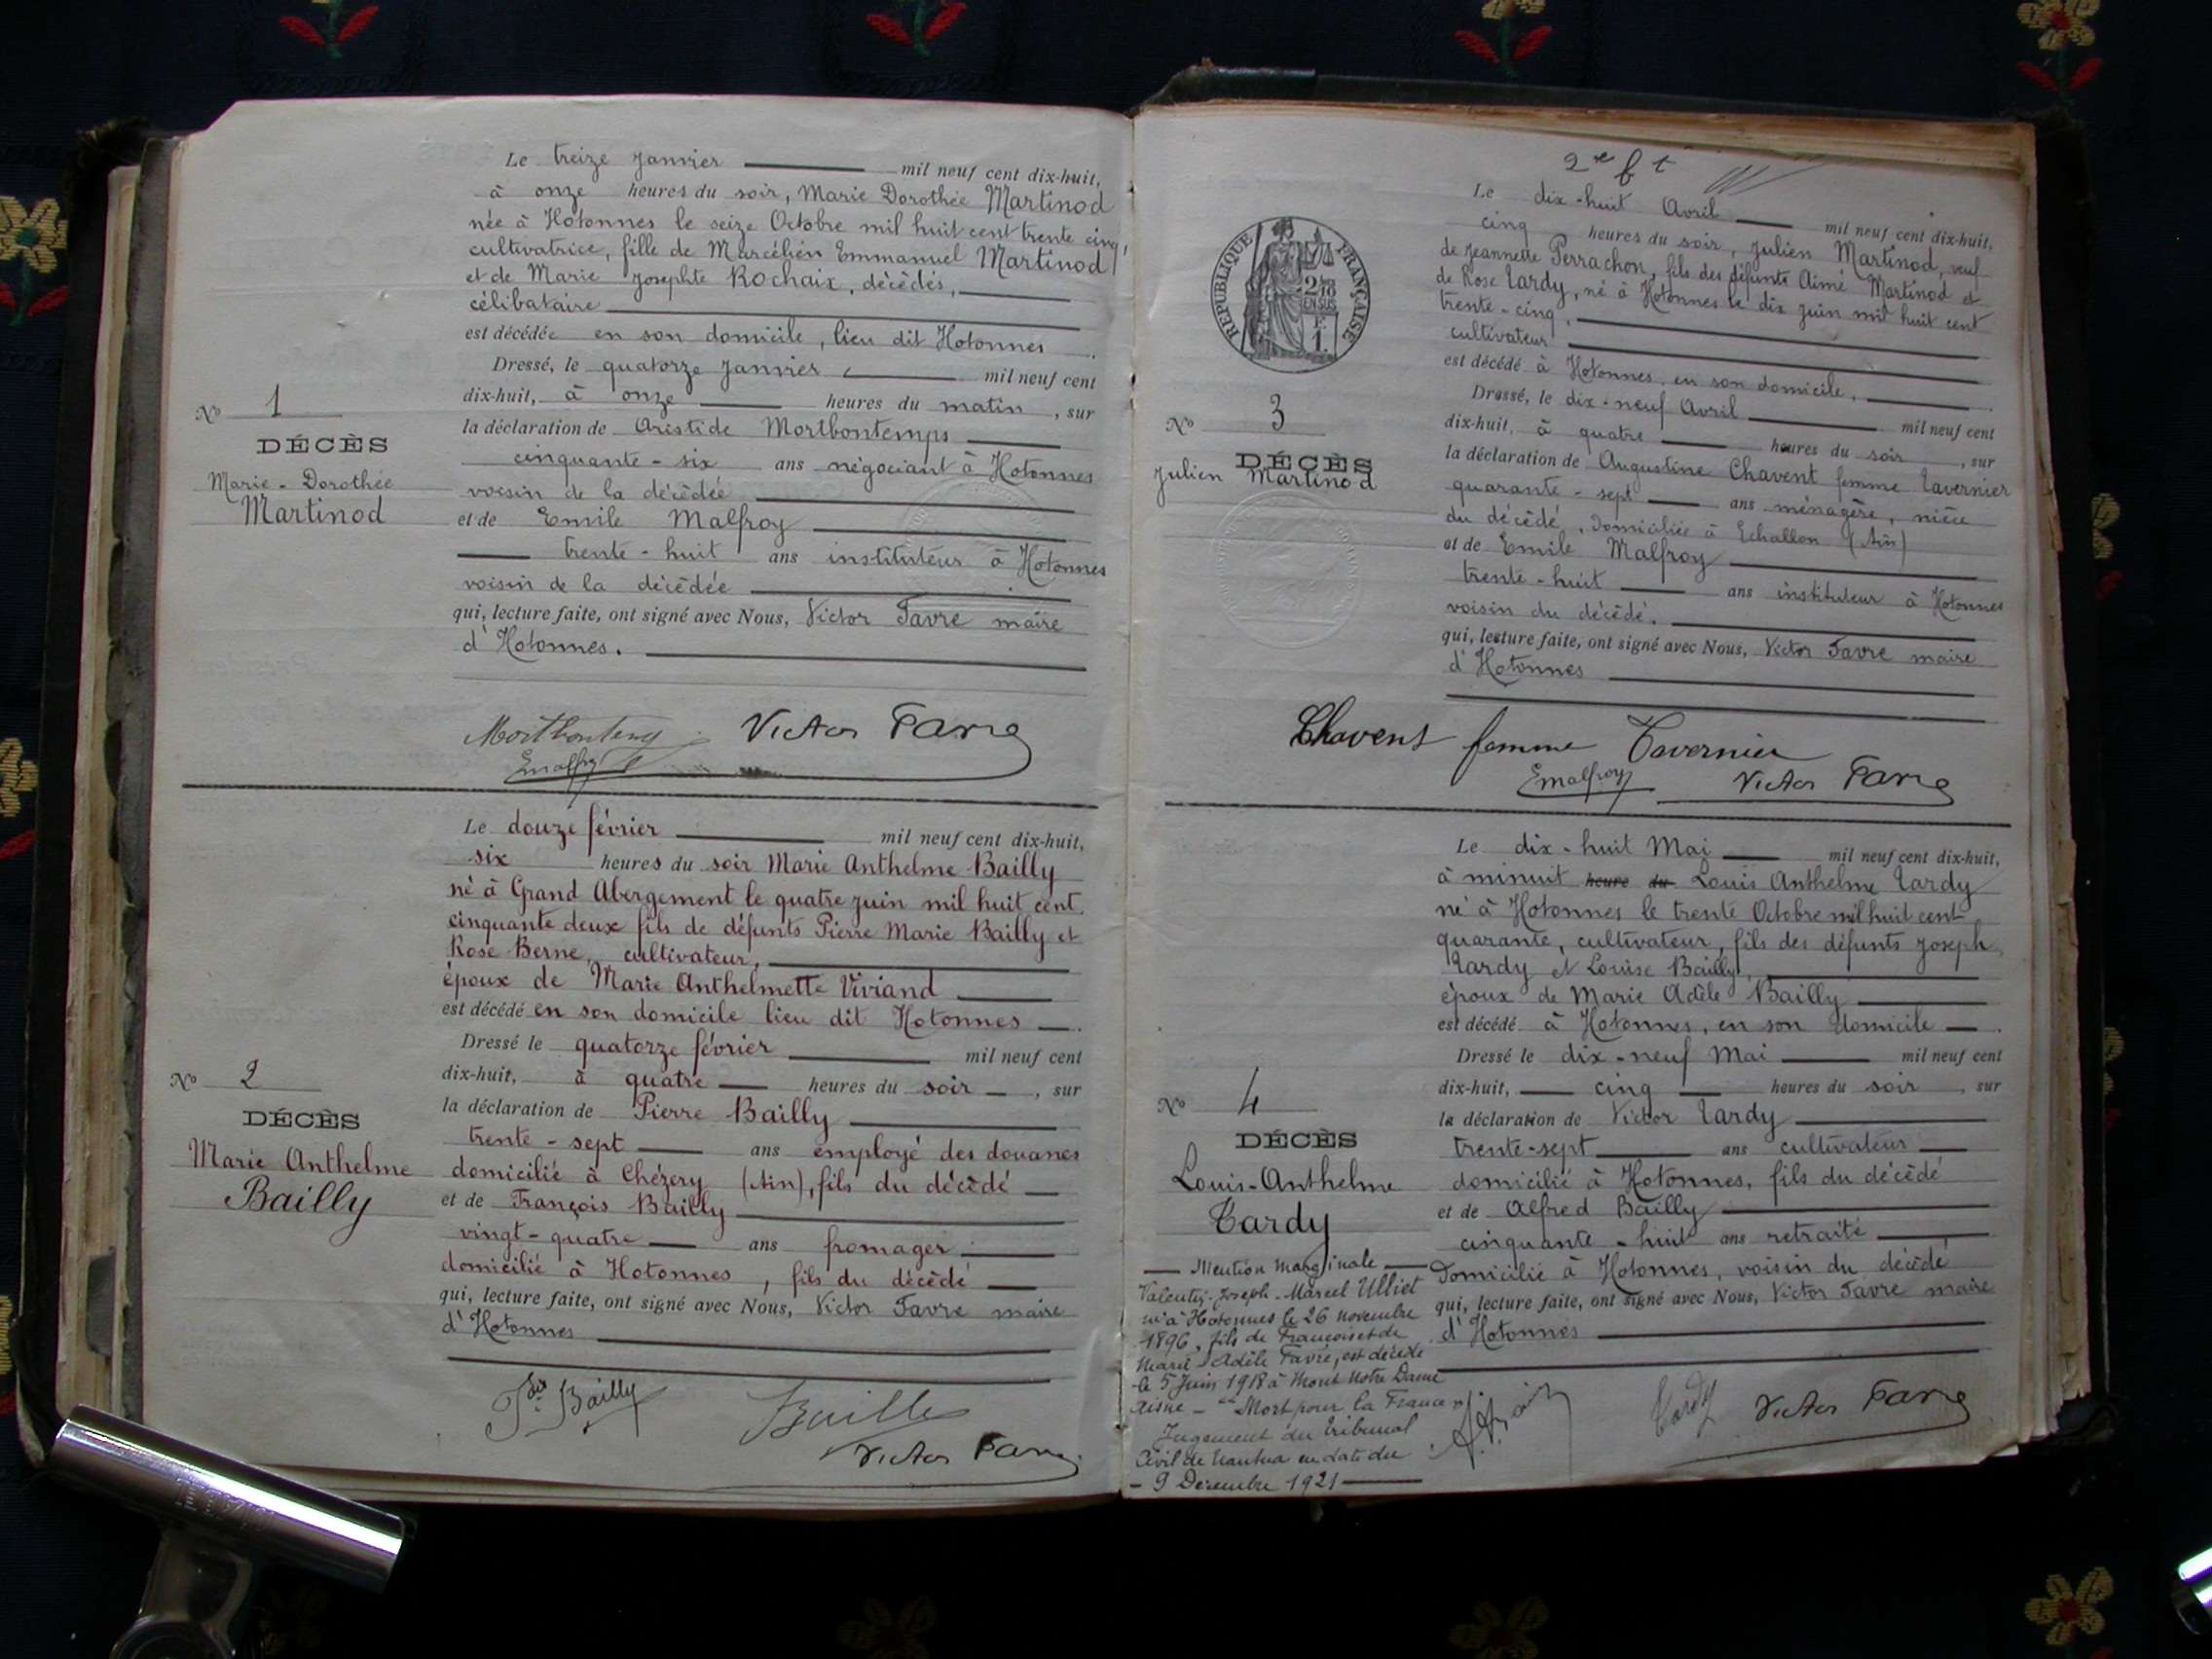 Le treize Janvier mil neuf cent dix-huit,
à onze heures du soir, Marie Dorothée Martinod
née à Hotonnes le seize Octobre mil huit cent trente cinq,
cultivatrice, fille de Marcélien Emmanuel Martinod
et de Marie Josephte Rochaix, décédés,
célibataire
est décédée en son domicile, lieu dit Hotonnes
Dressé, le quatorze Janvier mil neuf cent
dix-huit, à onze heures du matin, sur
la déclaration de Aristide Mortbontemps
cinquante-six ans négociant à Hotonnes
voisin de la décédée
et de Emile Malfroy
trente-huit ans instituteur à Hotonnes
voisin de la décédée
qui, lecture faite, ont signé avec Nous, Victor Favre maire
d'Hotonnes.
No 1
DÉCÈS
Marie-Dorothée
Martinod
Mortbontemps Victor Favre
Emalfroy
Le douze février mil neuf cent dix-huit,
six heures du soir Marie Anthelme Bailly
né à Grand Abergement le quatre juin mil huit cent
cinquante deux fils de défunts Pierre Marie Bailly et
Rose Berne, cultivateur,
époux de Marie Anthelmette Viviand
est décédé en son domicile lieu dit Hotonnes
Dressé le quatorze février mil neuf cent
dix-huit, à quatre heures du soir, sur
la déclaration de Pierre Bailly
trente-sept ans employé des douanes
domicilié à Chézery (Ain), fils du décédé
et de François Bailly
vingt-quatre ans fromager
domicilié à Hotonnes, fils du décédé
qui, lecture faite, ont signé avec Nous, Victor Favre maire
d'Hotonnes
No 2
DÉCÈS
Marie Anthelme
Bailly
Bailly Bailly
Victor Favre
2e ft
RÉPUBLIQUE FRANÇAISE
2/10
EN SUS
F.
1.
Le dix-huit Avril mil neuf cent dix-huit,
cinq heures du soir, Julien Martinod, veuf
de Jeannette Perrachon, fils des défunts Aimé Martinod et
de Rose Tardy, né à Hotonnes le dix juin mil huit cent
trente-cinq,
cultivateur
est décédé à Hotonnes, en son domicile,
Dressé, le dix-neuf Avril mil neuf cent
dix-huit, à quatre heures du soir, sur
la déclaration de Augustine Chavent femme Tavernier
quarante-sept ans ménagère, nièce
du décédé, domiciliée à Echallon (Ain)
et de Emile Malfroy
trente-huit ans instituteur à Hotonnes
voisin du décédé.
qui, lecture faite, ont signé avec Nous, Victor Favre maire
d'Hotonnes
No 3
DÉCÈS
Julien Martinod
Chavent femme Tavernier
Emalfroy Victor Favre
Le dix-huit Mai mil neuf cent dix-huit,
à minuit heure du Louis Anthelme Tardy
né à Hotonnes le trente Octobre mil huit cent
quarante, cultivateur, fils des défunts Joseph
Tardy et Louise Bailly,
époux de Marie Adèle Bailly
est décédé à Hotonnes, en son domicile
Dressé le dix-neuf Mai mil neuf cent
dix-huit, cinq heures du soir, sur
la déclaration de Victor Tardy
trente-sept ans cultivateur
domicilié à Hotonnes, fils du décédé
et de Alfred Bailly
cinquante-huit ans retraité
Domicilié à Hotonnes, voisin du décédé
qui, lecture faite, ont signé avec Nous, Victor Favre maire
d'Hotonnes
No 4
DÉCÈS
Louis-Anthelme
Tardy
Mention marginale
Valentin-Joseph-Marcel Ulliet
né à Hotonnes le 26 novembre
1896, fils de François et de
Marie Adèle Favre, est décédé
le 5 Juin 1918 à Mont Notre Dame
Aisne - "Mort pour la France"
Jugement du tribunal
Civil de Nantua en date du
- 9 Décembre 1921
Tardy Victor Favre